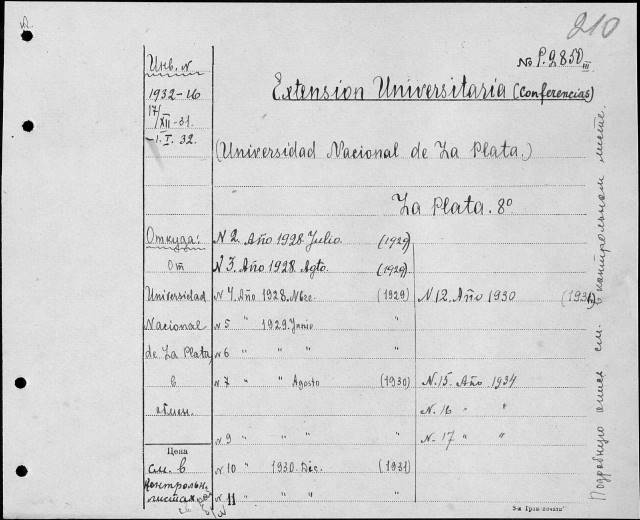 210
№ P.2850 III
Инв. N
1932-16
17/XII-31.
-1.I.32.
Extension Universitaria (Conferencias)
(Universidad Nacional de La Plata.)
La Plata. 8º
Откуда:
От
Universidad
Nacional
de La Plata
в
обмен.
Цена
см. в
контрольн.
листах
N 2. Año 1928 Julio. (1929)
N 3. Año 1928 Agto. (1929)
N 4. Año 1928. Nbre. (1929)
N 5 " 1929. Junio "
N 6 " " " "
N 7 " " Agosto (1930)
N 9 " " " "
N 10 " 1930. Dic. (1931)
N 11 " " "
N 12. Año 1930 (1931)
N. 15. Año 1934
N. 16 " "
N. 17 " "
Подробную опись см. в контрольном листе.
3-я Грав. почати